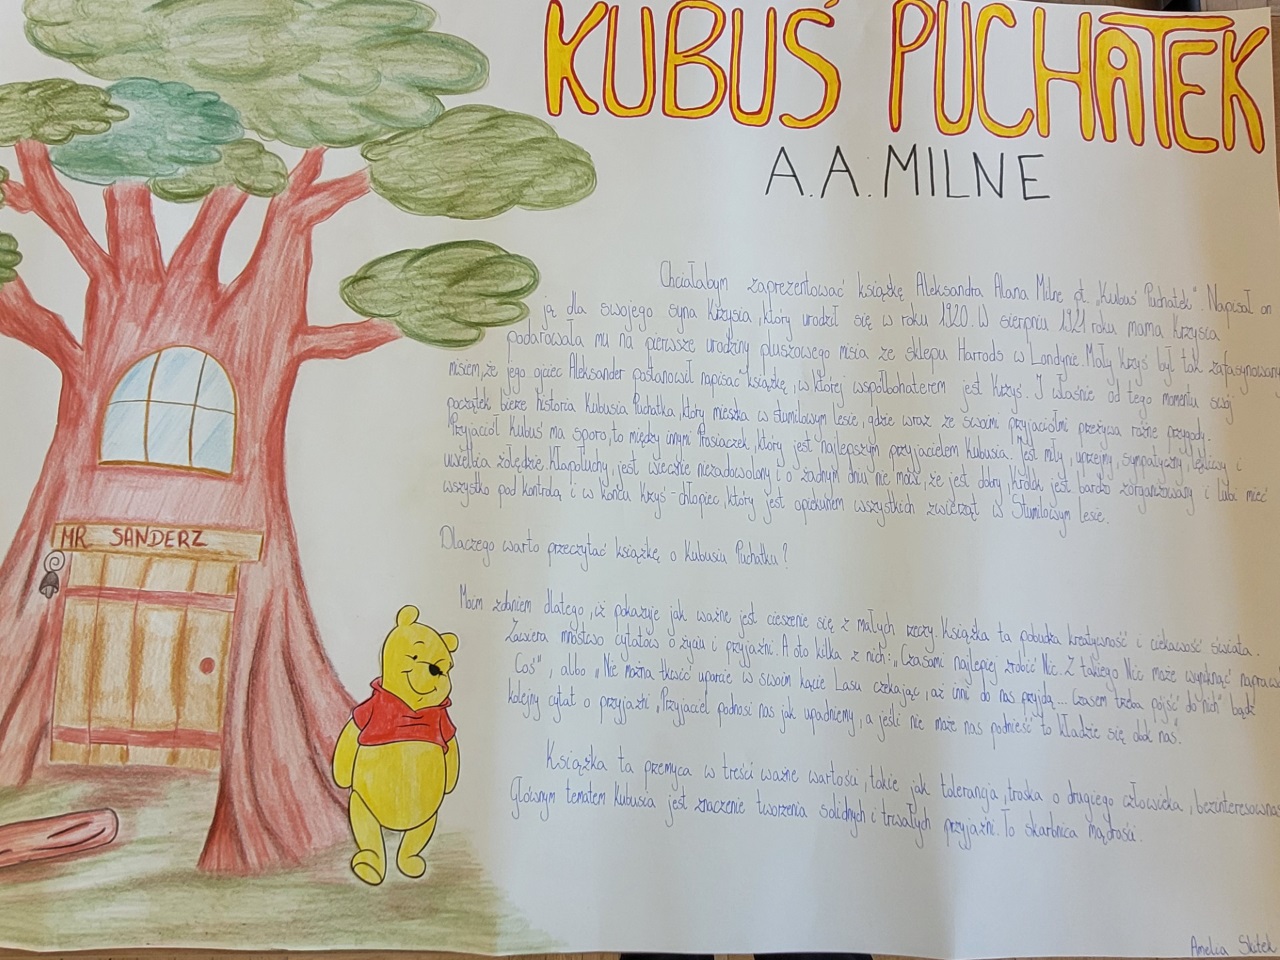 KUBUŚ PUCHATEK
A.A. MILNE
Chciałabym zaprezentować książkę Aleksandra Alana Milne pt. „Kubuś Puchatek". Napisał on
ją dla swojego syna Krzysia, który urodził się w roku 1920. W sierpniu 1921 roku mama Krzysia
podarowała mu na pierwsze urodziny pluszowego misia ze sklepu Harrods w Londynie. Mały Krzyś był tak zafascynowany
misiem, że jego ojciec Aleksander postanowił napisać książkę, w której współbohaterem jest Krzyś. I właśnie od tego momentu swój
początek bierze historia Kubusia Puchatka, który mieszka w stumilowym lesie, gdzie wraz ze swoimi przyjaciółmi przeżywa różne przygody.
Przyjaciół Kubuś ma sporo, to między innymi Prosiaczek, który jest najlepszym przyjacielem Kubusia. Jest miły, uprzejmy, sympatyczny, lękliwy i
uwielbia żołędzie, Kłapołuchy, jest wiecznie niezadowolony i o żadnym dniu nie mówi, że jest dobry, Królik jest bardzo zorganizowany i lubi mieć
wszystko pod kontrolą i w końcu Krzyś - chłopiec, który jest opiekunem wszystkich zwierząt w Stumilowym Lesie.
Dlaczego warto przeczytać książkę o Kubusiu Puchatku?
Moim zdaniem dlatego, iż pokazuje jak ważne jest cieszenie się z małych rzeczy. Książka ta pobudza kreatywność i ciekawość świata.
Zawiera mnóstwo cytatów o życiu i przyjaźni. A oto kilka z nich: „Czasami najlepiej zrobić Nic. Z takiego Nic może wyniknąć naprawdę
Coś", albo „Nie można tkwić uparcie w swoim kącie Lasu czekając, aż inni do nas przyjdą... Czasem trzeba pójść do nich" bądź
kolejny cytat o przyjaźni „Przyjaciel podnosi nas jak upadniemy, a jeśli nie może nas podnieść to kładzie się obok nas".
Książka ta przemyca w treści ważne wartości, takie jak tolerancja, troska o drugiego człowieka, bezinteresowność
Głównym tematem Kubusia jest znaczenie tworzenia solidnych i trwałych przyjaźni. To skarbnica mądrości.
MR SANDERZ
Amelia